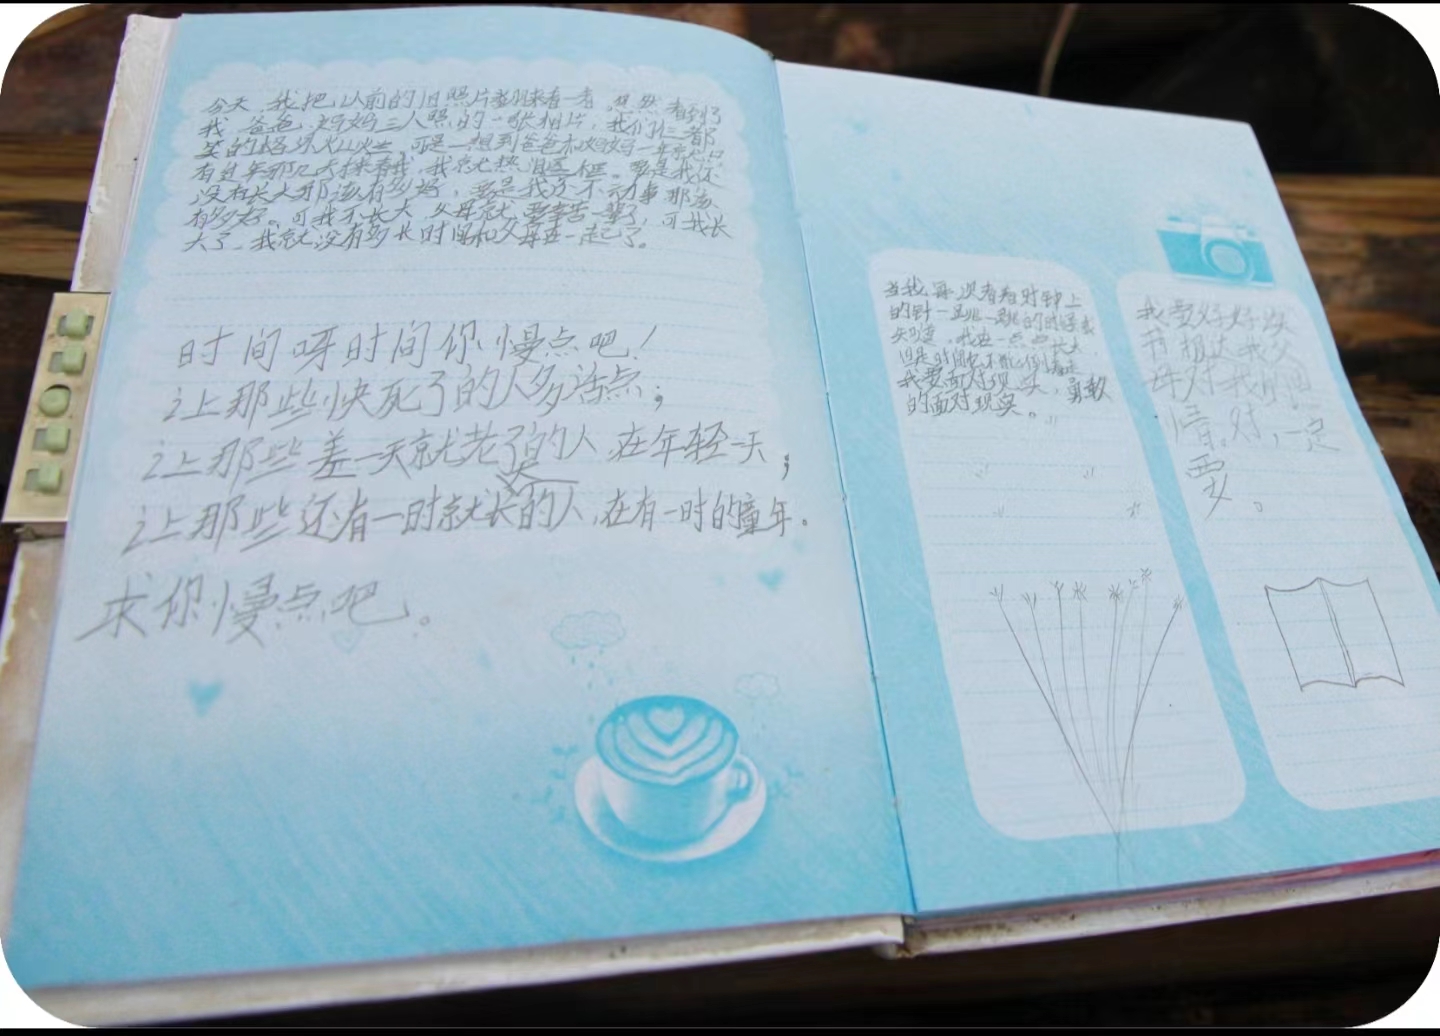 今天,我把以前的旧照片都翻来看一看,竟然看到了
我、爸爸、妈妈三人照的一张相片,我们仨都
笑的格外灿烂。可是一想到爸爸和妈妈一年
有过年那几天陪着我,我就热泪。要是我还
没有长大那该有多好,要是我还不动事那该
有多好。可我不长大,父母就要辛苦一辈了,可我长
大了,我就没有多长时间和父母在一起了。
时间呀时间你慢点吧!
让那些快死了的人多活点;
让那些差一天就老了的人,在年轻一天;
让那些还有一时就长的人,在有一时的童年。
求你慢点吧。
当我再次看着时钟上
的针一跳一跳的时候我
知道,我在一点一点长大,
但是时间不能倒着走
我要面对现实,勇敢
的面对现实。
我要好好
父
母对我的
情。对,一定
要。